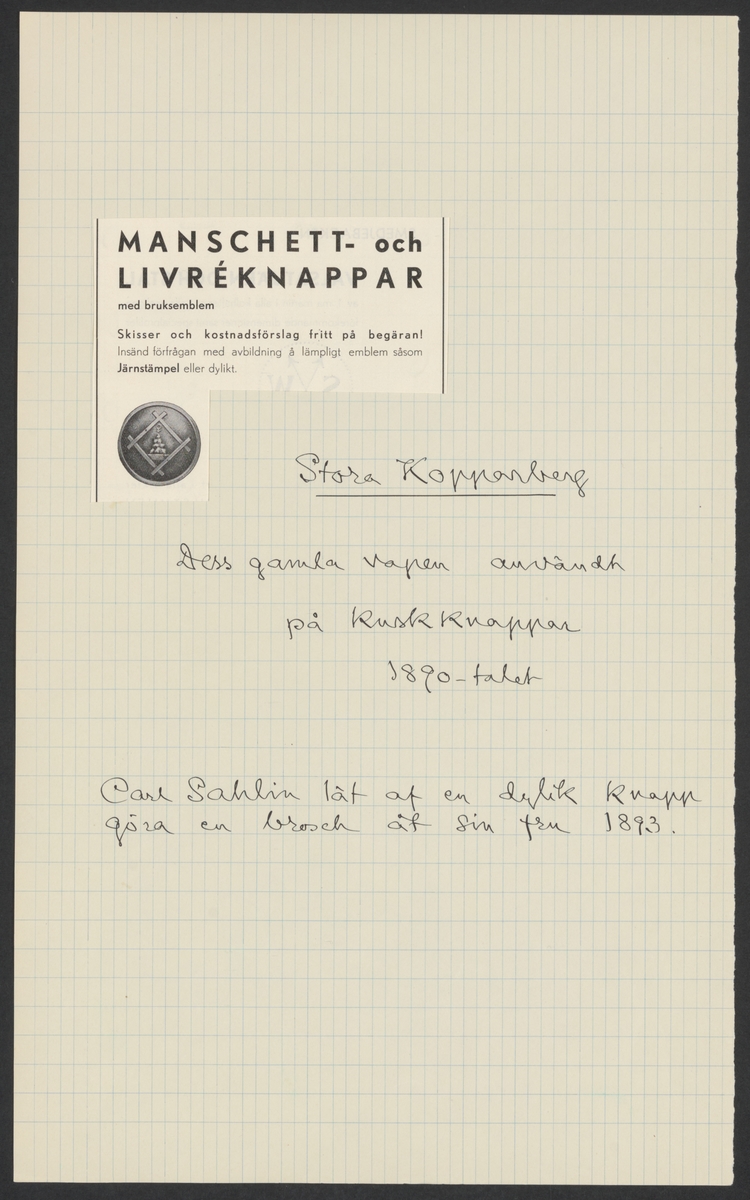 MANSCHETT- och
LIVRÉKNAPPAR
med bruksemblem
Skisser och kostnadsförslag fritt på begäran!
Insänd förfrågan med avbildning å lämpligt emblem såsom
Järnstämpel eller dylikt.
Stora Kopparberg
Dess gamla vapen användt
på kuskknappar
1890-talet
Carl Sahlin lät af en dylik knapp
göra en brosch åt sin fru 1893.